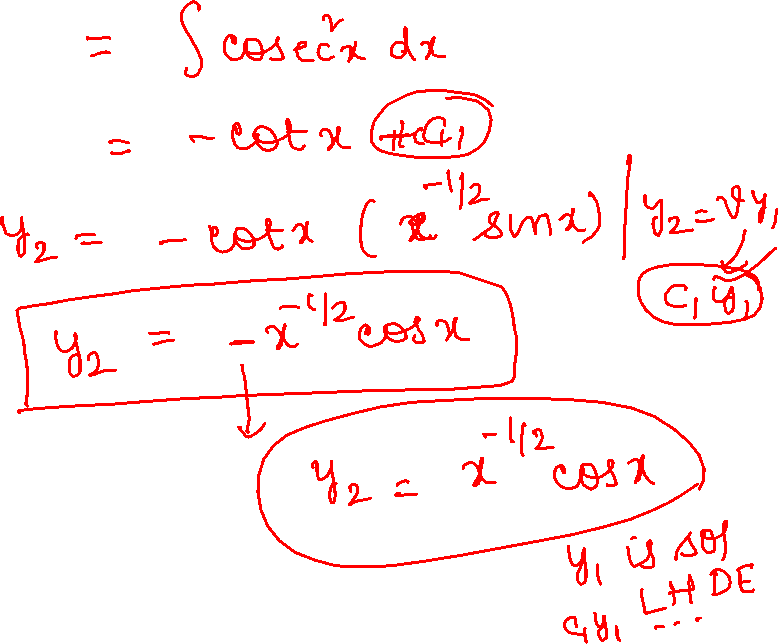 = ∫ cosec²x dx
= - cot x + C₁
y₂ = - cot x ( x^{-1/2} sinx ) | y₂ = vy₁
C₁ y₁
y₂ = - x^{-1/2} cosx
y₂ = x^{-1/2} cosx
y₁ is sol
LHDE
C₁y₁ ...